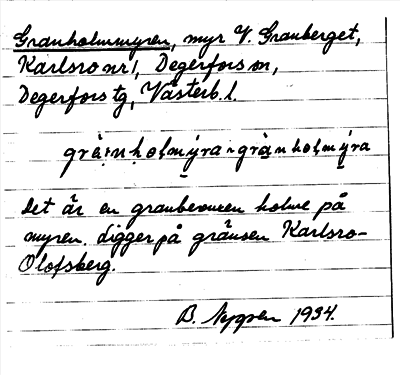 Granholmmyren, myr V. Granberget,
Karlsro nr 1, Degerfors sn,
Degerfors tg, Västerb. l.
grà:nhol̩mýra ~ grà̱nhol̩mýra
Det är en granbevuxen holme på
myren. Ligger på gränsen Karlsro-
Olofsberg.
B. Nygren 1934.